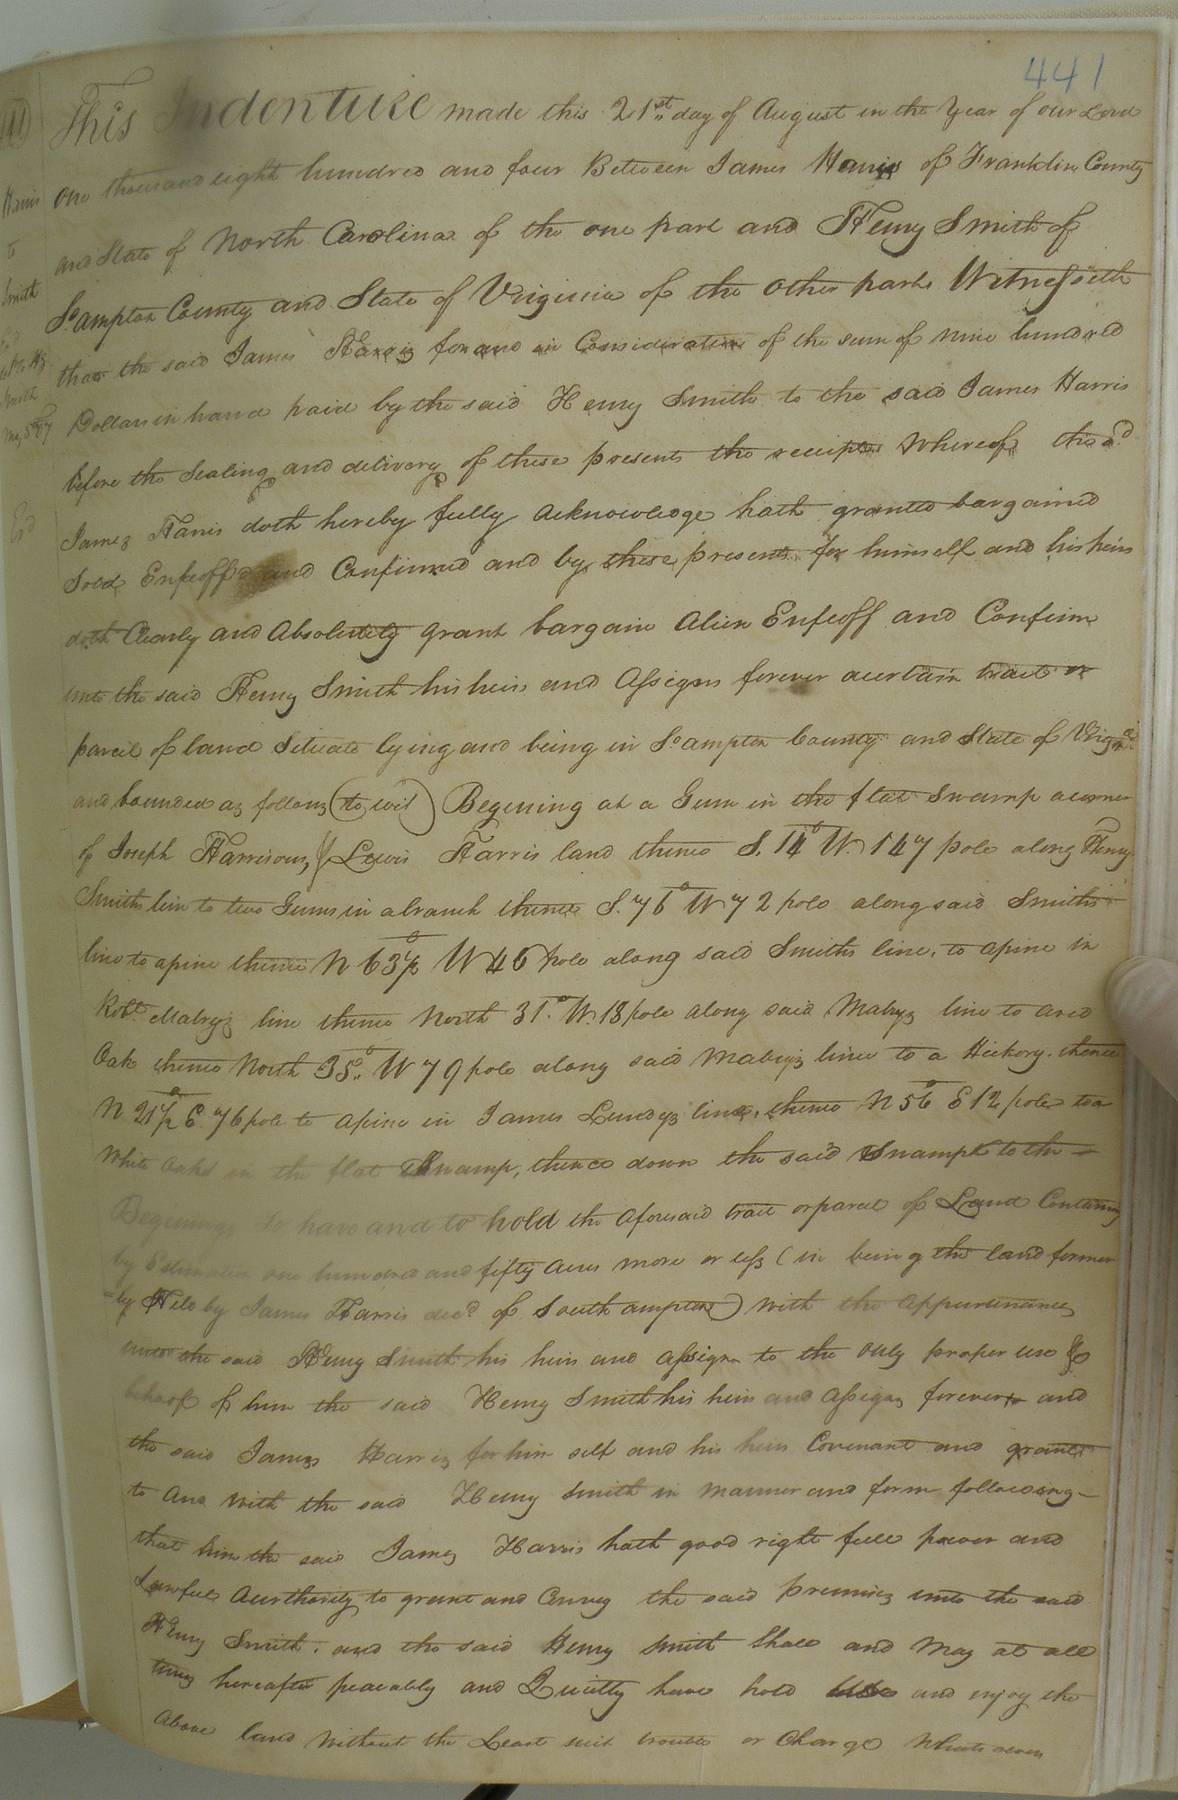 441
This Indenture made this 21st day of August in the Year of our Lord
one thousand eight hundred and four Between James Harris of Franklin County
and State of North Carolina of the one part and Henry Smith of
Harris
to
Smith
So ampton County and State of Virginia of the other part Witnesseth
that the said James Harris for and in Consideration of the sum of nine hundred
Dollars in hand paid by the said Henry Smith to the said James Harris
before the Sealing and delivery of these presents the receipt Whereof the sd
James Harris doth hereby fully acknowledge hath granted bargained
Sold Enfeoffd and Confirmed and by these presents for himself and his heirs
doth Clearly and Absolutely grant bargain Alien Enfeoff and Confirm
unto the said Henry Smith his heirs and Assigns forever a certain tract or
parcel of land Situate lying and being in So ampton County and State of Virgna
and bounded as follows (to wit) Begining at a Gum in the flat Swamp a corner
of Joseph Harrisons, & Lewis Harris land thence S. 14° W. 147 pole along Henry
Smiths line to two Gums in a branch thence S. 76° W 72 polo along said Smiths
line to a pine thence N 63½° W 46 pole along said Smiths line, to a pine in
Robt. Mabrys line thence North 31°. W. 18 pole along said Mabrys line to a red
Oak thence North 35°. W 79 pole along said Mabrys line to a Hickory. thence
N 21½° E. 76 pole to a pine in James Lundys line, thence N 56° E 12 pole to a
White Oake in the flat Swamp, thence down the said Swamp to the
Begining, to have and to hold the aforesaid tract or parcel of Land Containing
by Estimation one hundred and fifty acres more or less (in being the land former
=ly Held by James Harris decd of Southampton) with the appurtenances
unto the said Henry Smith his heirs and assigns to the only proper use &
behoof of him the said Henry Smith his heirs and assigns forever and
the said James Harris for him self and his heirs Covenant and grant
to and with the said Henry Smith in manner and form following
that him the said James Harris hath good right full power and
Lawfull Aurthority to grant and Convey the said premises unto the said
Henry Smith. and the said Henry Smith Shall and May at all
times hereafter peaceably and Quietly have hold use and enjoy the
above land without the Least suit trouble or Charge Whatsoever